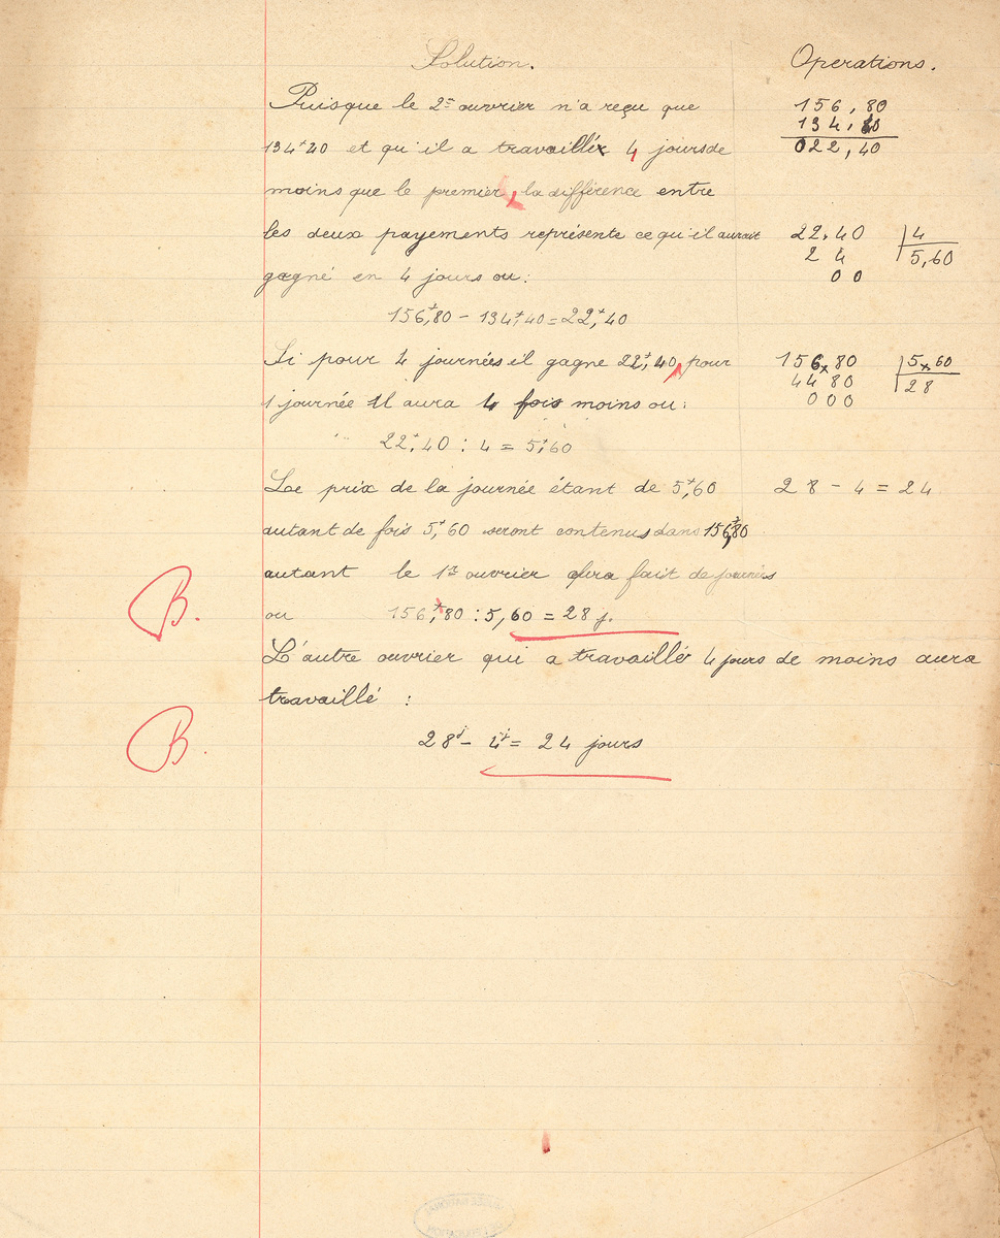 Solution.
Operations.
Puisque le 2e ouvrier n'a reçu que
134f40 et qu'il a travaillé 4 jours de
moins que le premier, la différence entre
les deux payements représente ce qu'il aurait
gagné en 4 jours ou:
156f,80 - 134f,40 = 22f,40
Si pour 4 journées il gagne 22f,40, pour
1 journée il aura 4 fois moins ou:
22f,40 : 4 = 5f,60
Le prix de la journée étant de 5f,60
autant de fois 5f,60 seront contenus dans 156f,80
autant le 1er ouvrier aura fait de journées
ou 156f,80 : 5,60 = 28 j.
L'autre ouvrier qui a travaillé 4 jours de moins aura
travaillé :
28j - 4j = 24 jours
156,80
134,40
022,40
22,40 | 4
2 4 5,60
0 0
156,80 | 5,60
44 80 28
000
28 - 4 = 24
B.
B.